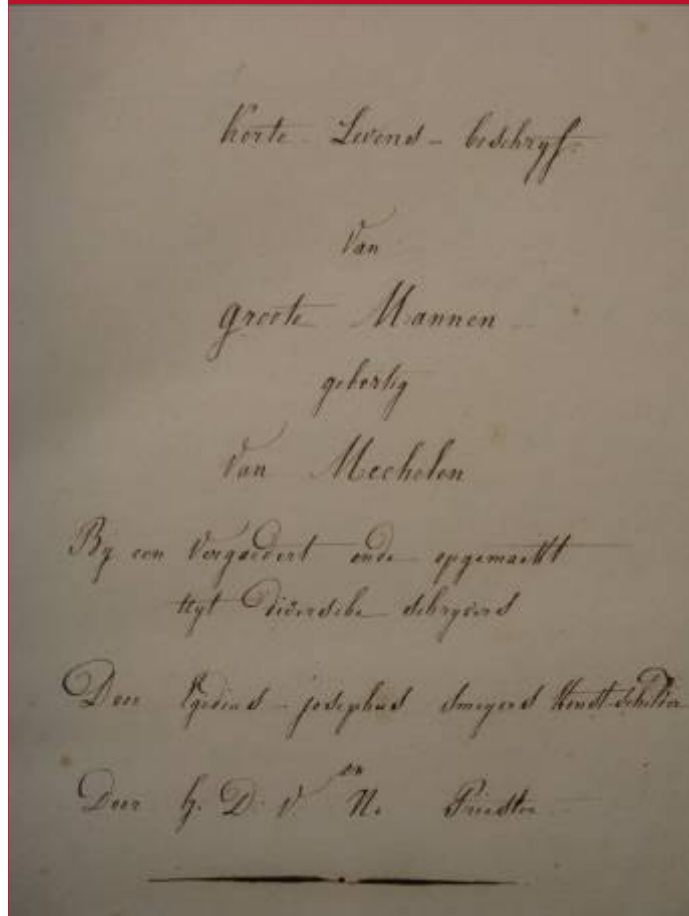 Korte Levens-beschryf:
Van
groote Mannen
gebortig
Van Mechelen
By een Vergaedert ende opgemaekt
uyt diversche schryvers
Door Egedius-josephus Smeyers Konst-schilder
en
Door G. D. V. N. Priester